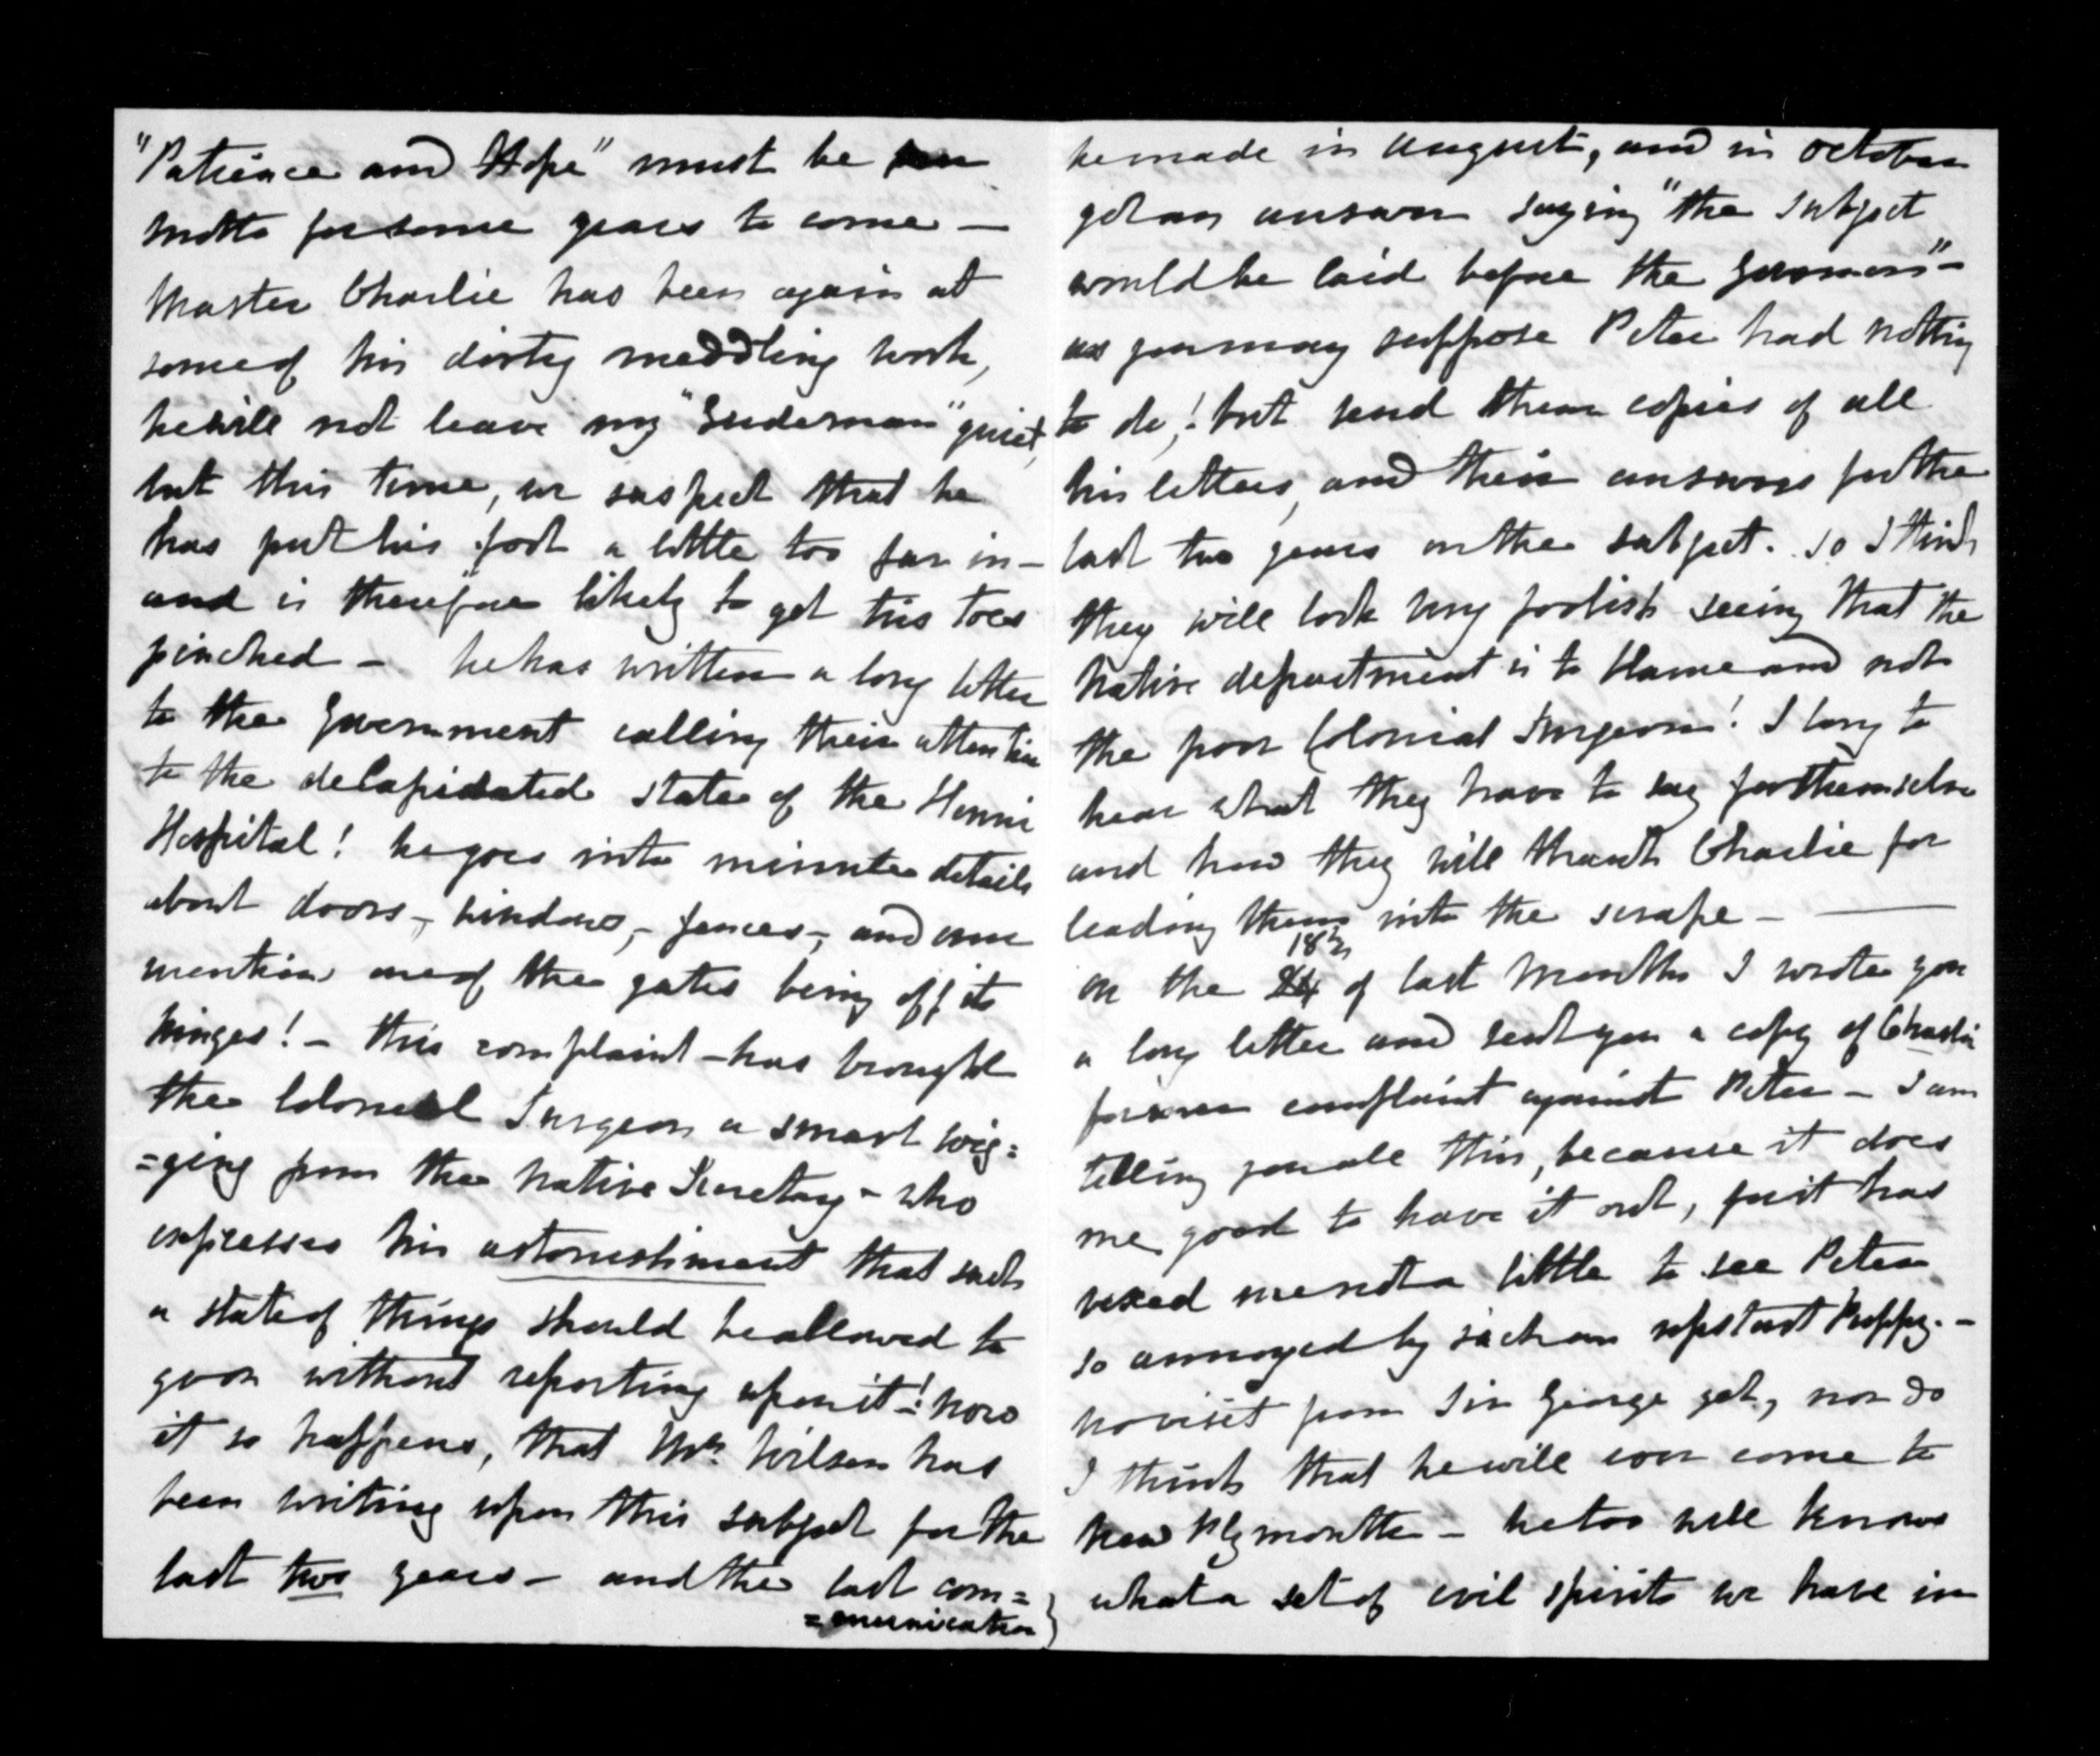 "Patience and Hope" must be our
motto for some years to come —
Master Charlie has been again at
some of his dirty meddling work,
he will not leave my "Gudeman" quiet,
but this time, we suspect that he
has put his foot a little too far in —
and is therefore likely to get his toes
pinched — he has written a long letter
to the Government calling their attention
to the delapidated state of the Henui
Hospital! he goes into minute details
about doors, — windows, — fences, — and even
mentions one of the gates being off its
hinges! — this complaint — has brought
the Colonial Surgeon a smart wig=
=ging from the Native Secretary — who
expresses his astonishment that such
a state of things should be allowed to
go on without reporting upon it! — now
it so happens, that Mr. Wilson has
been writing upon this subject for the
last two years — and the last com=
=munication
he made in August, and in October
got an answer saying "the subject
would be laid before the Governor" —
as you may suppose Peter had nothing
to do,! but send them copies of all
his letters, and their answers for the
last two years on the subject. so I think
they will look very foolish seeing that the
Native department is to blame and not
the poor Colonial Surgeon! I long to
hear what they have to say for themselves
and how they will thank Charlie for
leading them into the scrape — —
18th
on the 24 of last month I wrote you
a long letter and sent you a copy of Charlie
former complaint against Peter — I am
telling you all this, because it does
me good to have it out, for it has
vexed me not a little to see Peter
so annoyed by such an upstart Puppy. —
no visit from Sir George yet, nor do
I think that he will ever come to
New Plymouth — he too well knows
what a set of evil spirits we have in